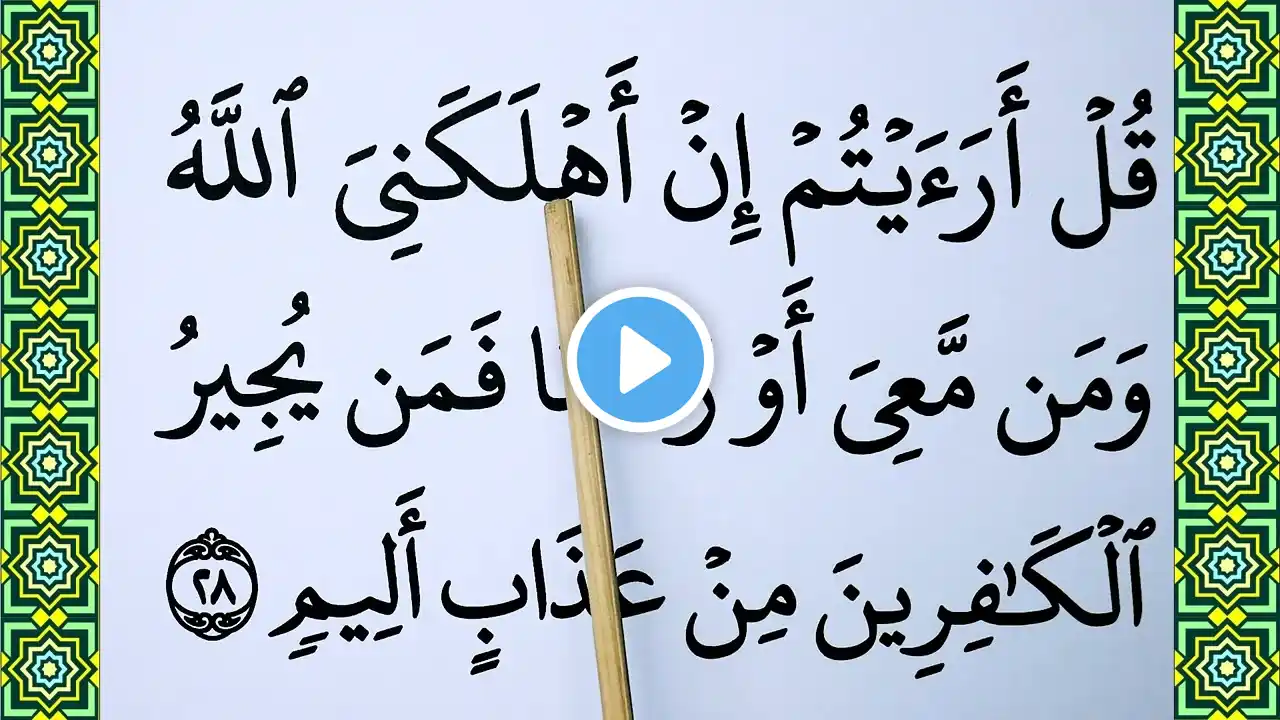 قُلۡ أَرَءَيۡتُمۡ إِنۡ أَهۡلَكَنِىَ ٱللَّهُ
وَمَن مَّعِىَ أَوۡ فَمَن يُجِيرُ
ٱلۡكَـٰفِرِينَ مِنۡ عَذَابٍ أَلِيمٍ ٢٨